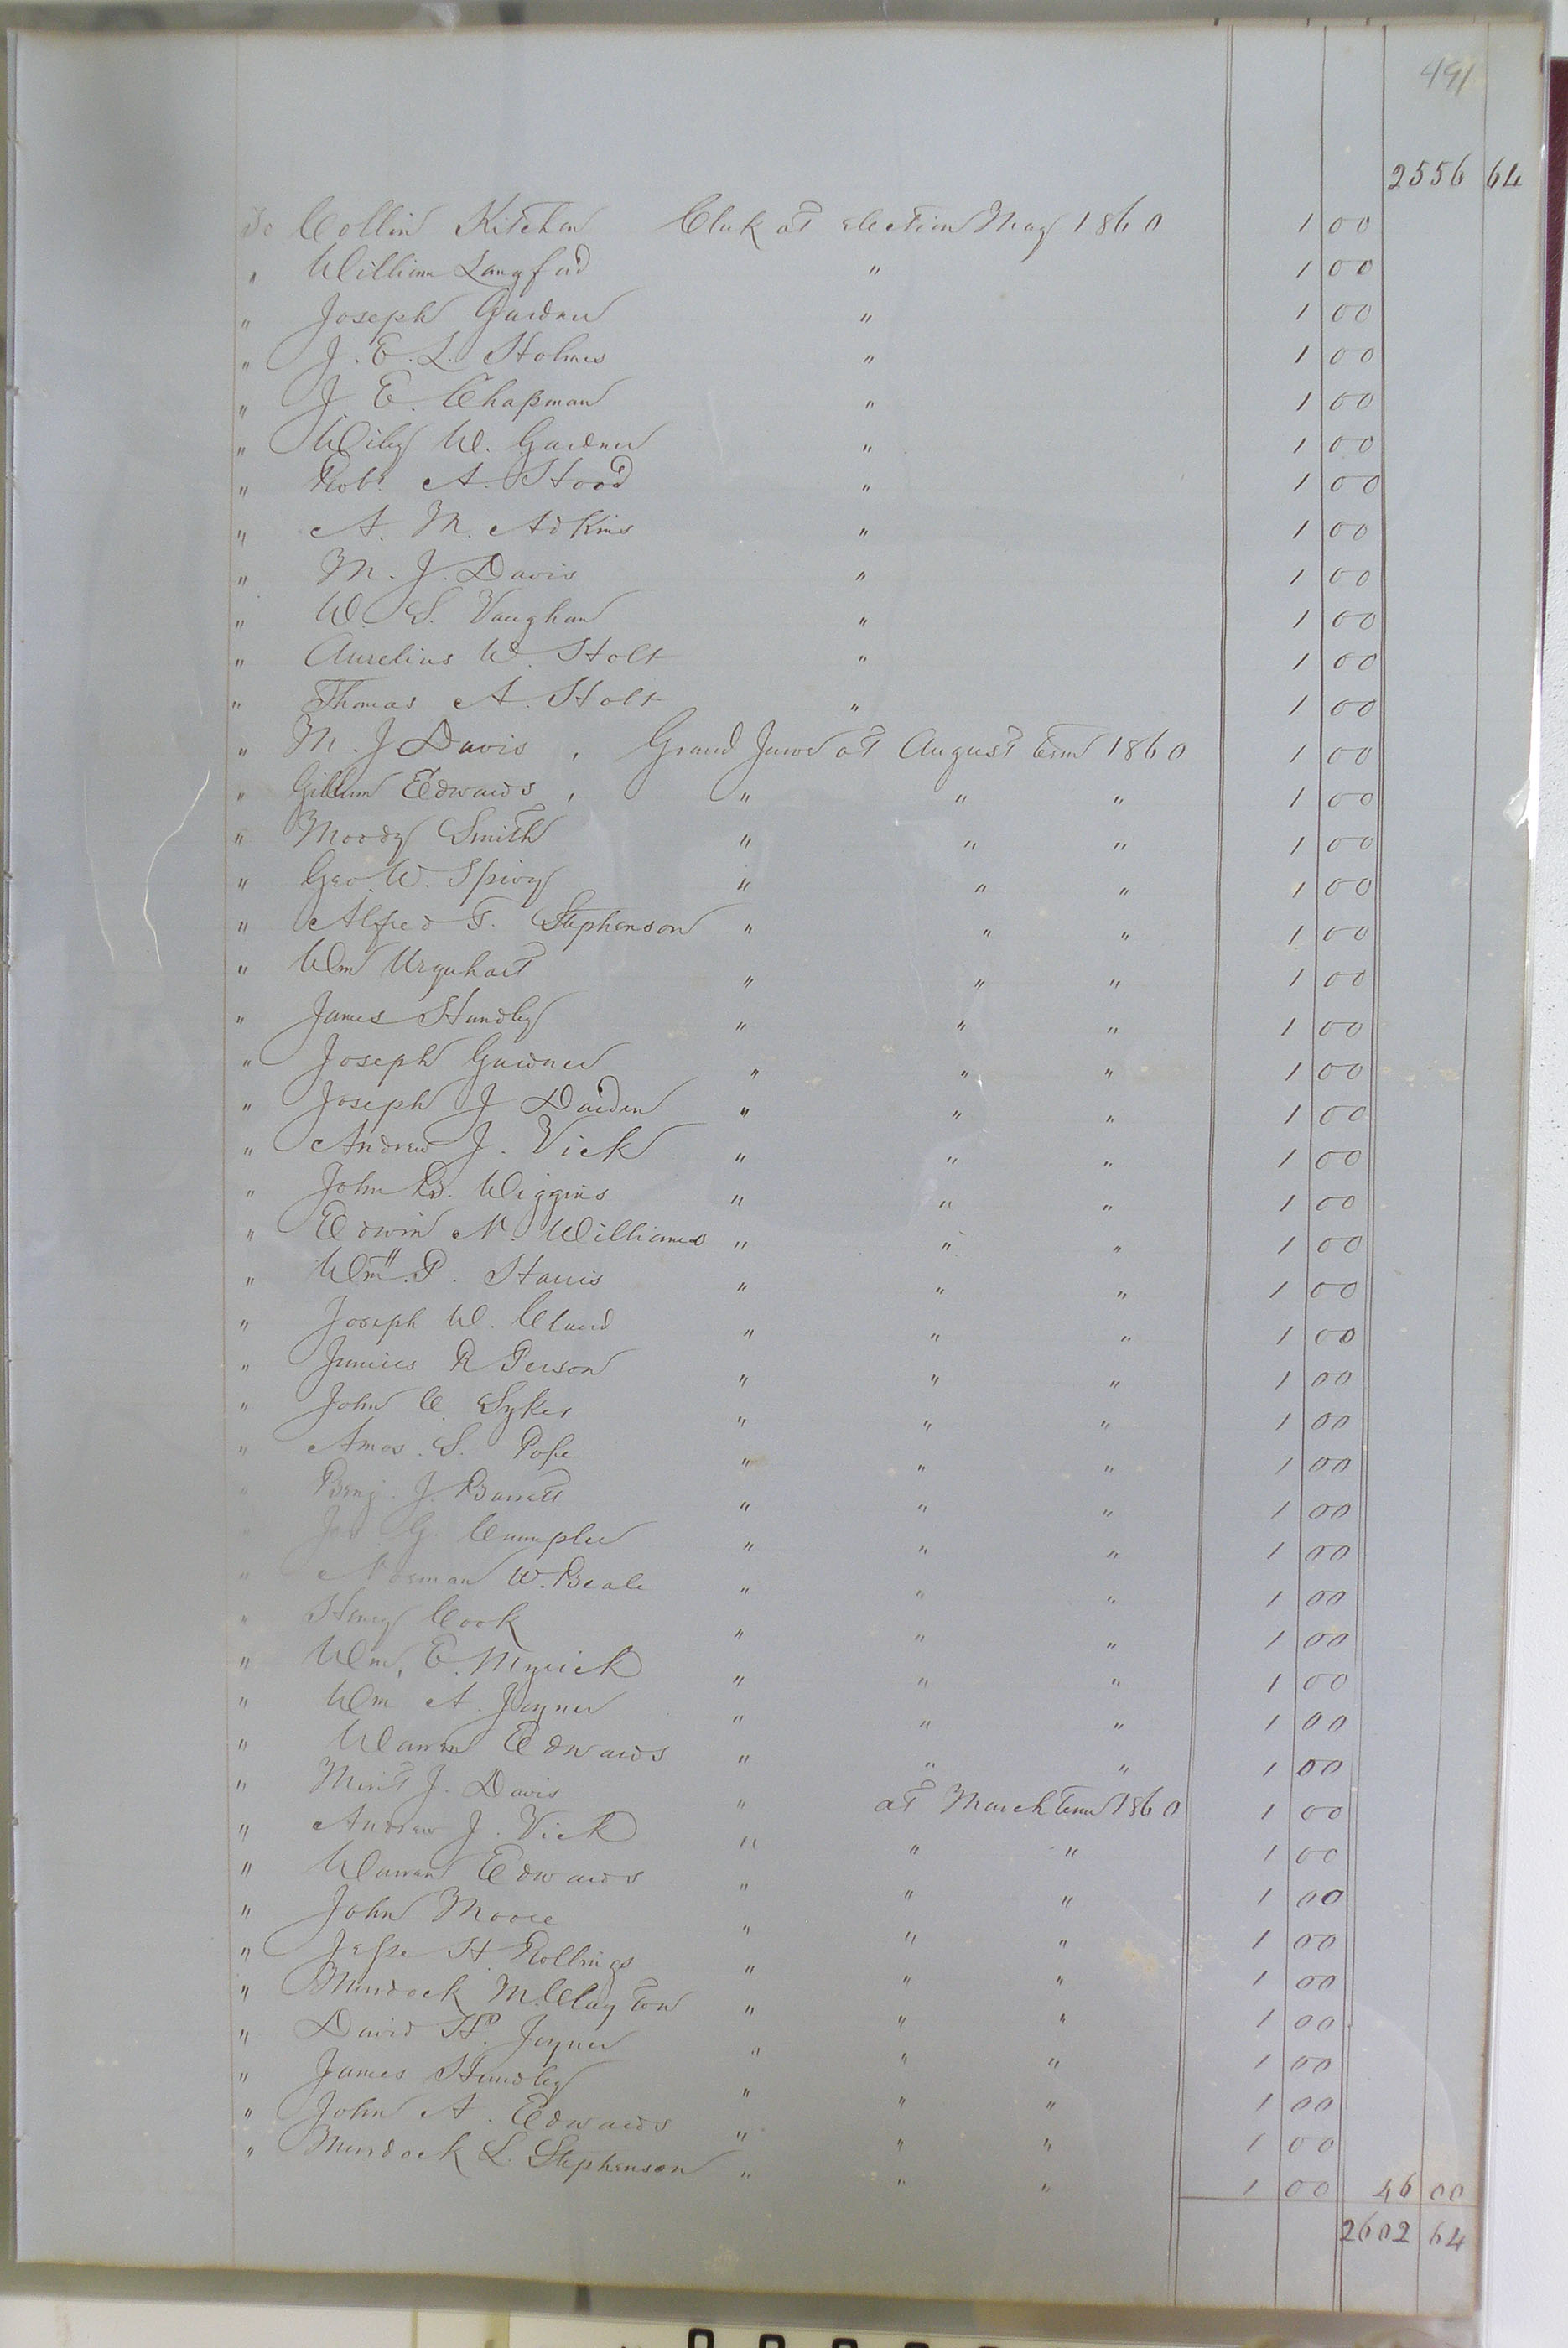 491
2556 64
To Collin Kitchen Clerk at election May 1860 1 00
" William Langford " 1 00
" Joseph Gardner " 1 00
" J. E. L. Holmes " 1 00
" J. E. Chapman " 1 00
" Wiley W. Gardner " 1 00
" Robt. A. Hood " 1 00
" A. M. Adkins " 1 00
" M. J. Davis " 1 00
" W. S. Vaughan " 1 00
" Aurelius W. Holt " 1 00
" Thomas A. Holt " 1 00
" M. J Davis , Grand Juror at August term 1860 1 00
" Gillium Edwards , " " " 1 00
" Moody Smith " " " 1 00
" Geo. W. Spivey " " " 1 00
" Alfred F. Stephenson " " " 1 00
" Wm Urquhart " " " 1 00
" James Hundley " " " 1 00
" Joseph Gardner " " " 1 00
" Joseph J Darden " " " 1 00
" Andrew J. Vick " " " 1 00
" John B. Wiggins " " " 1 00
" Edwin N. Williams " " " 1 00
" Wm. P. Harris " " " 1 00
" Joseph W. Claud " " " 1 00
" Junius R Person " " " 1 00
" John C. Sykes " " " 1 00
" Amos. S. Pope " " " 1 00
" Benj. J. Barrett " " " 1 00
" G. Crumpler " " " 1 00
" Norman W. Beale " " " 1 00
" Henry Cook " " " 1 00
" Wm. E. Myrick " " " 1 00
" Wm A. Joyner " " " 1 00
" Warren Edwards " " " 1 00
" J. Davis " at March term 1860 1 00
" Andrew J. Vick " " " 1 00
" Warren Edwards " " " 1 00
" John Moore " " " 1 00
" Jesse H. Rollings " " " 1 00
" Murdock M. Clayton " " " 1 00
" David H. Joyner " " " 1 00
" James Hundley " " " 1 00
" John A. Edwards " " " 1 00
" Murdock L. Stephenson " " " 1 00 46 00
2602 64